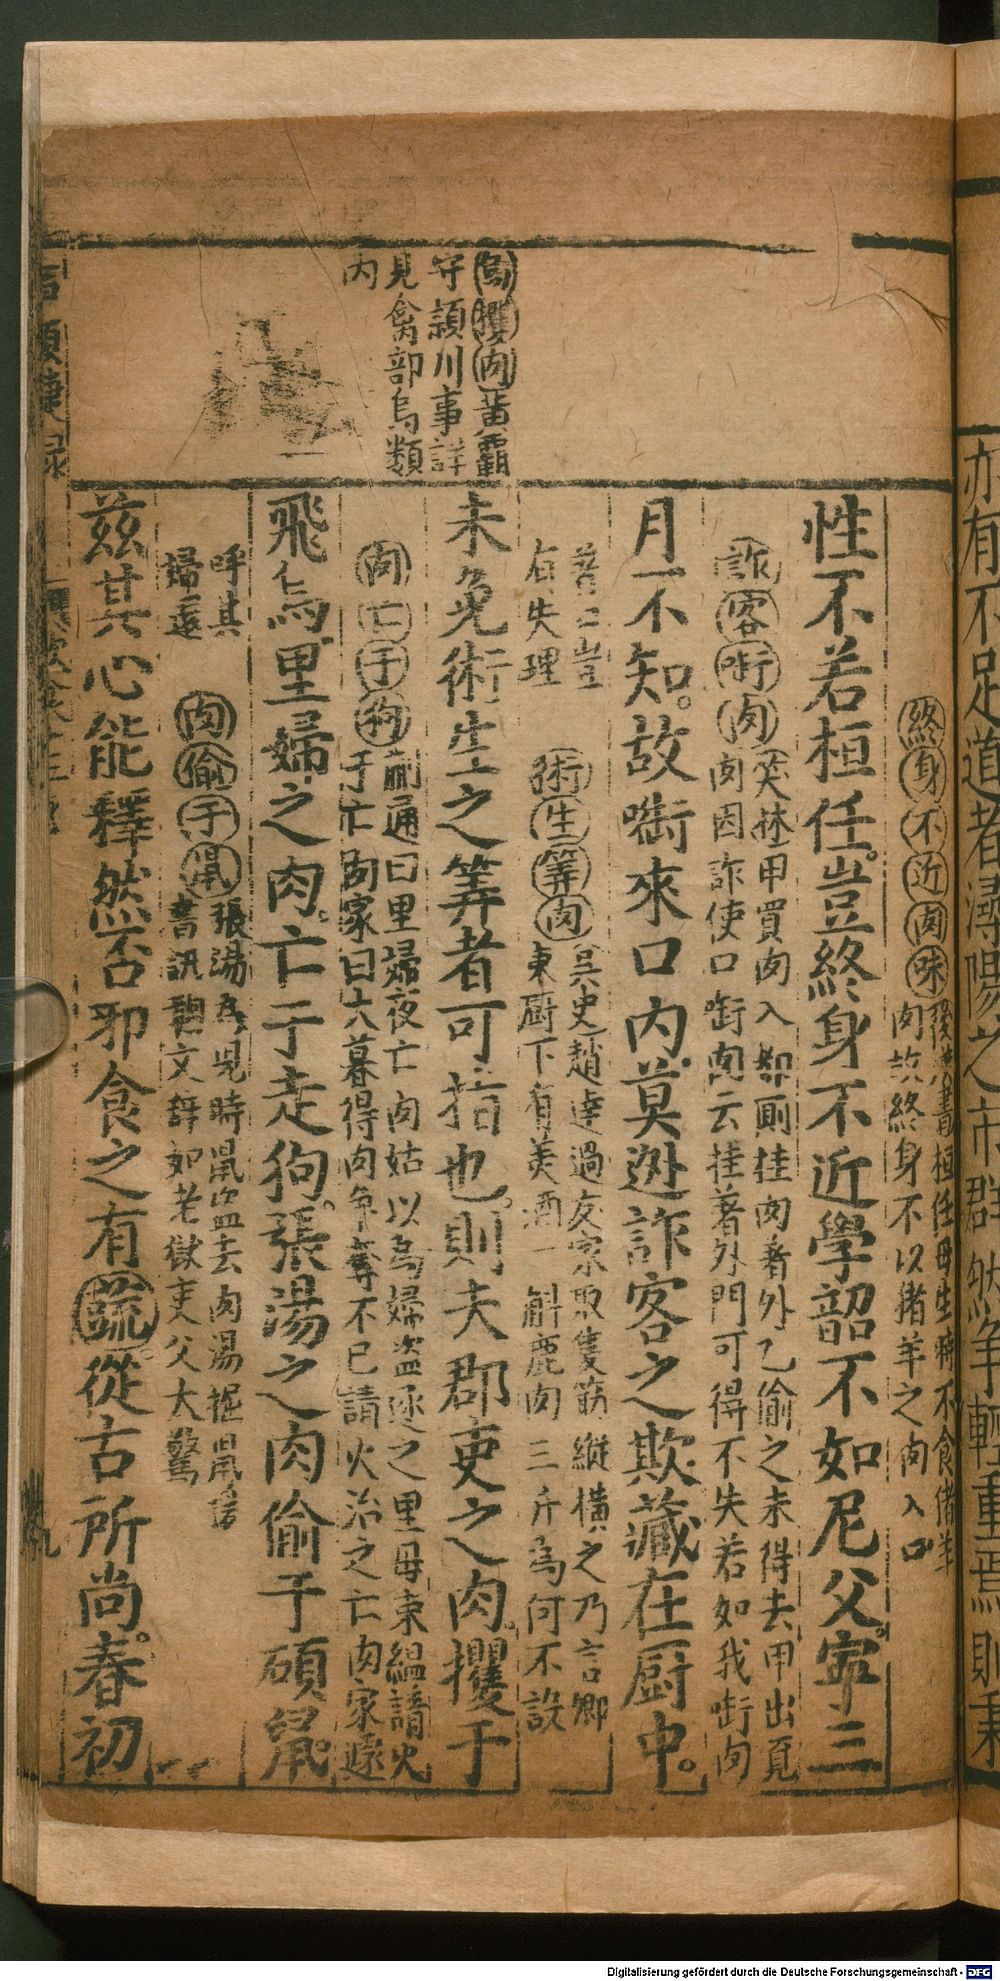 亦有不足道者潯陽之市群然爭輕重焉則秉
烏攫肉黃霸
守潁川事詳
見禽部烏類
內
終身不近肉味後漢書桓任母生時不食猪羊
肉故終身不以猪羊之肉入口
性不若桓任豈終身不近學韶不如尼父寜三
詐客啣肉笑林甲買肉入都厠挂肉着外乙偷之未得去甲出覓
肉因詐使口啣肉云挂著外門可得不失若如我啣肉
月不知故啣來口內莫迯詐客之欺藏在厨中
著口豈
有失理
術生筭肉吳史趙達過友家取隻筯縱橫之乃言卿
東厨下有美酒一斛鹿肉三斤爲何不設
未免術生之筭者可指也則夫郡吏之肉攫于
肉亡于狗蒯通曰里婦夜亡肉姑以爲婦盗逐之里母束緼請火
于亡肉家曰犬暮得肉争奪不已請火治之亡肉家遽
飛烏里婦之肉亡于走狗張湯之肉偷于碩鼠
呼其
婦還
肉偷于鼠張湯爲兒時鼠盗去肉湯掘鼠
書訊鞫文辞如老獄吏父大驚
兹其心能釋然否邪食之有蔬從古所尚春初